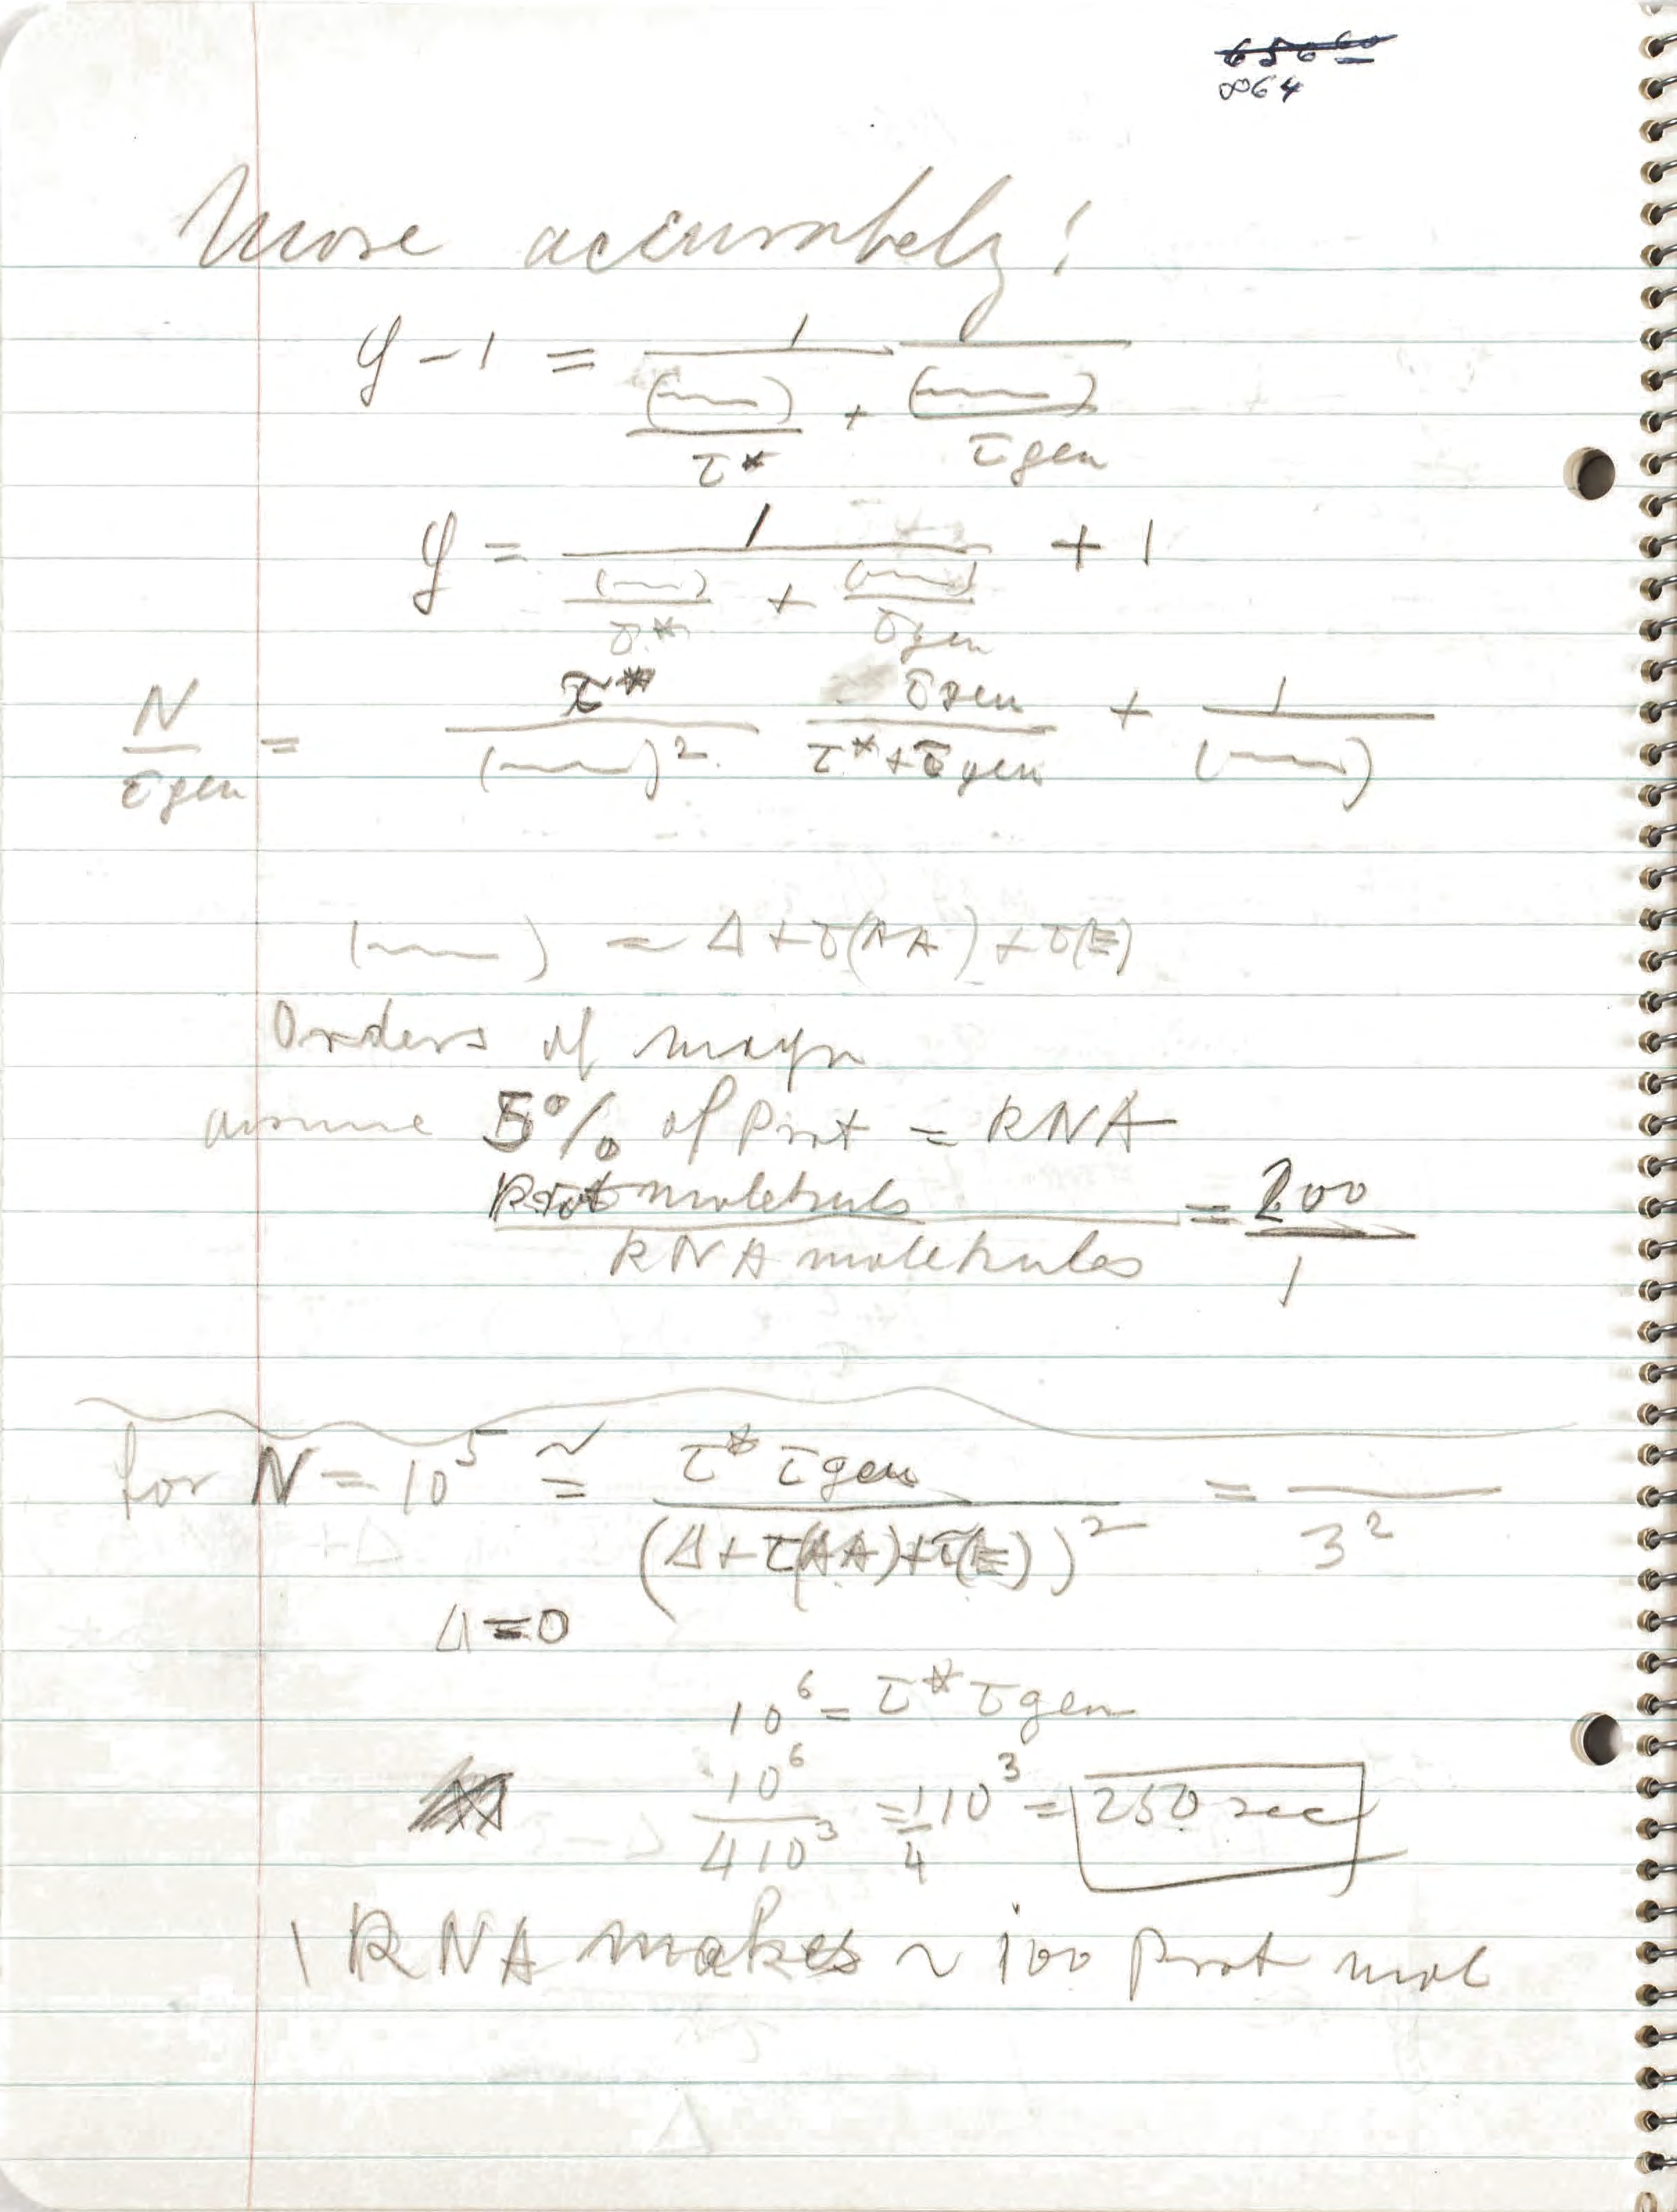 864
More accurately:
y - 1 = 1 / ( (~~~) / τ* + (~~~) / τgen )
y = 1 / ( (~~~) / τ* + (~~~) / τgen ) + 1
N / τgen = τ* / (~~~)² τgen / (τ* + τgen) + 1 / (~~~)
(~~~) = Δ + τ(AA) + τ(E)
Orders of magn
assume 5% of Prot = RNA
Prot molekuls / RNA molekules = 200 / 1
for N = 10⁵ ≅ τ* τgen / (Δ + τ(AA) + τ(E))² = / 3²
Δ = 0
10⁶ = τ* τgen
10⁶ / 4 10³ = 1/4 10³ = 250 sec
1 RNA makes ~ 100 Prot mol